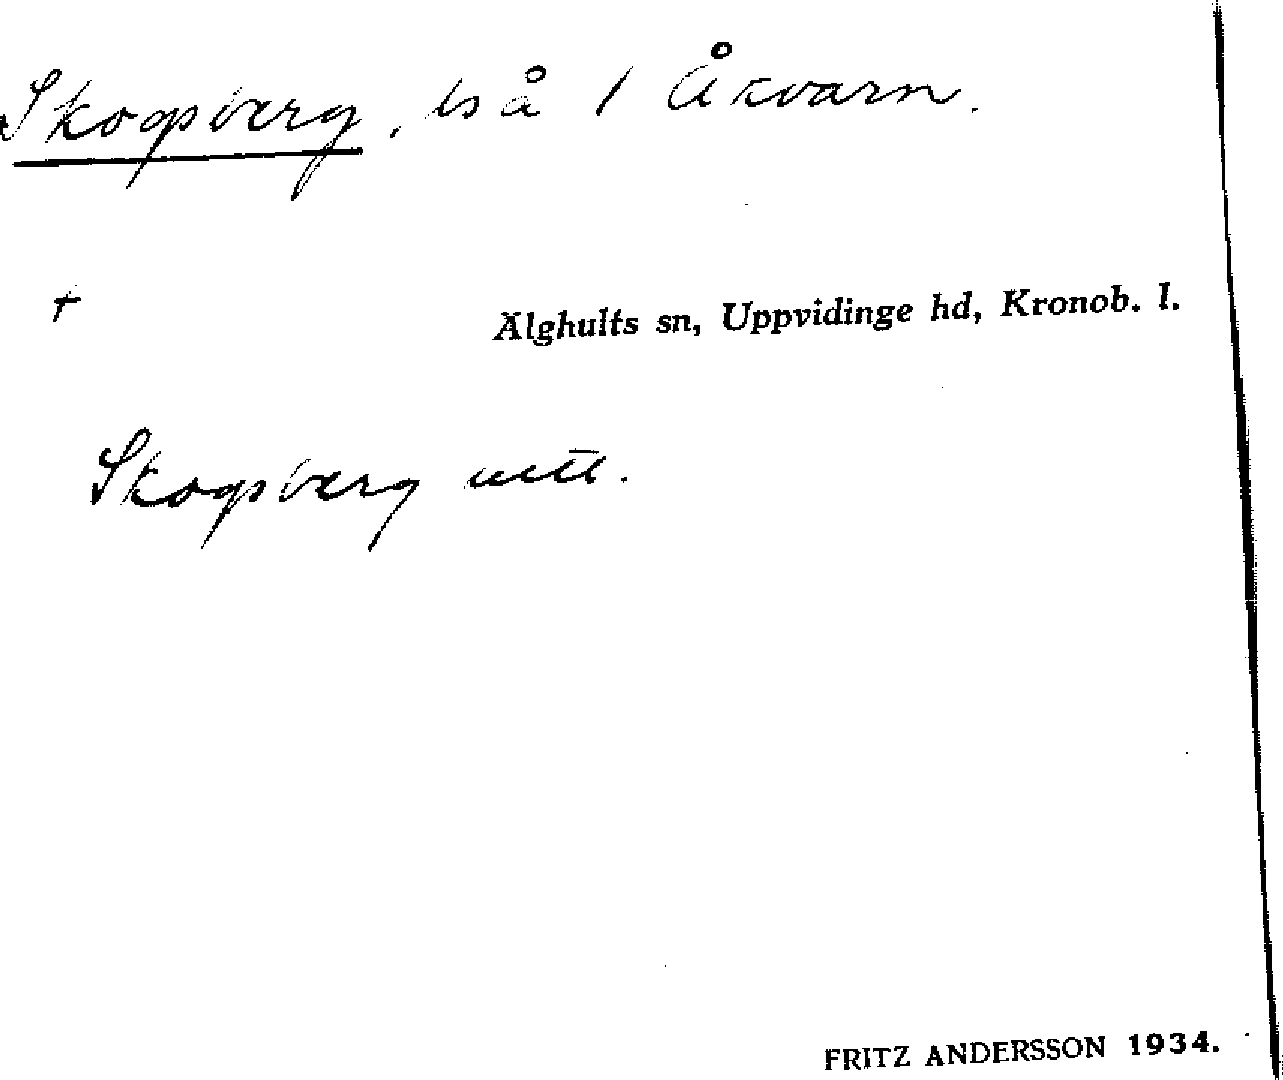 Skogsberg, bs å / Åkvarn.
+
Älghults sn, Uppvidinge hd, Kronob. l.
Skogsberg utt.
FRITZ ANDERSSON 1934.